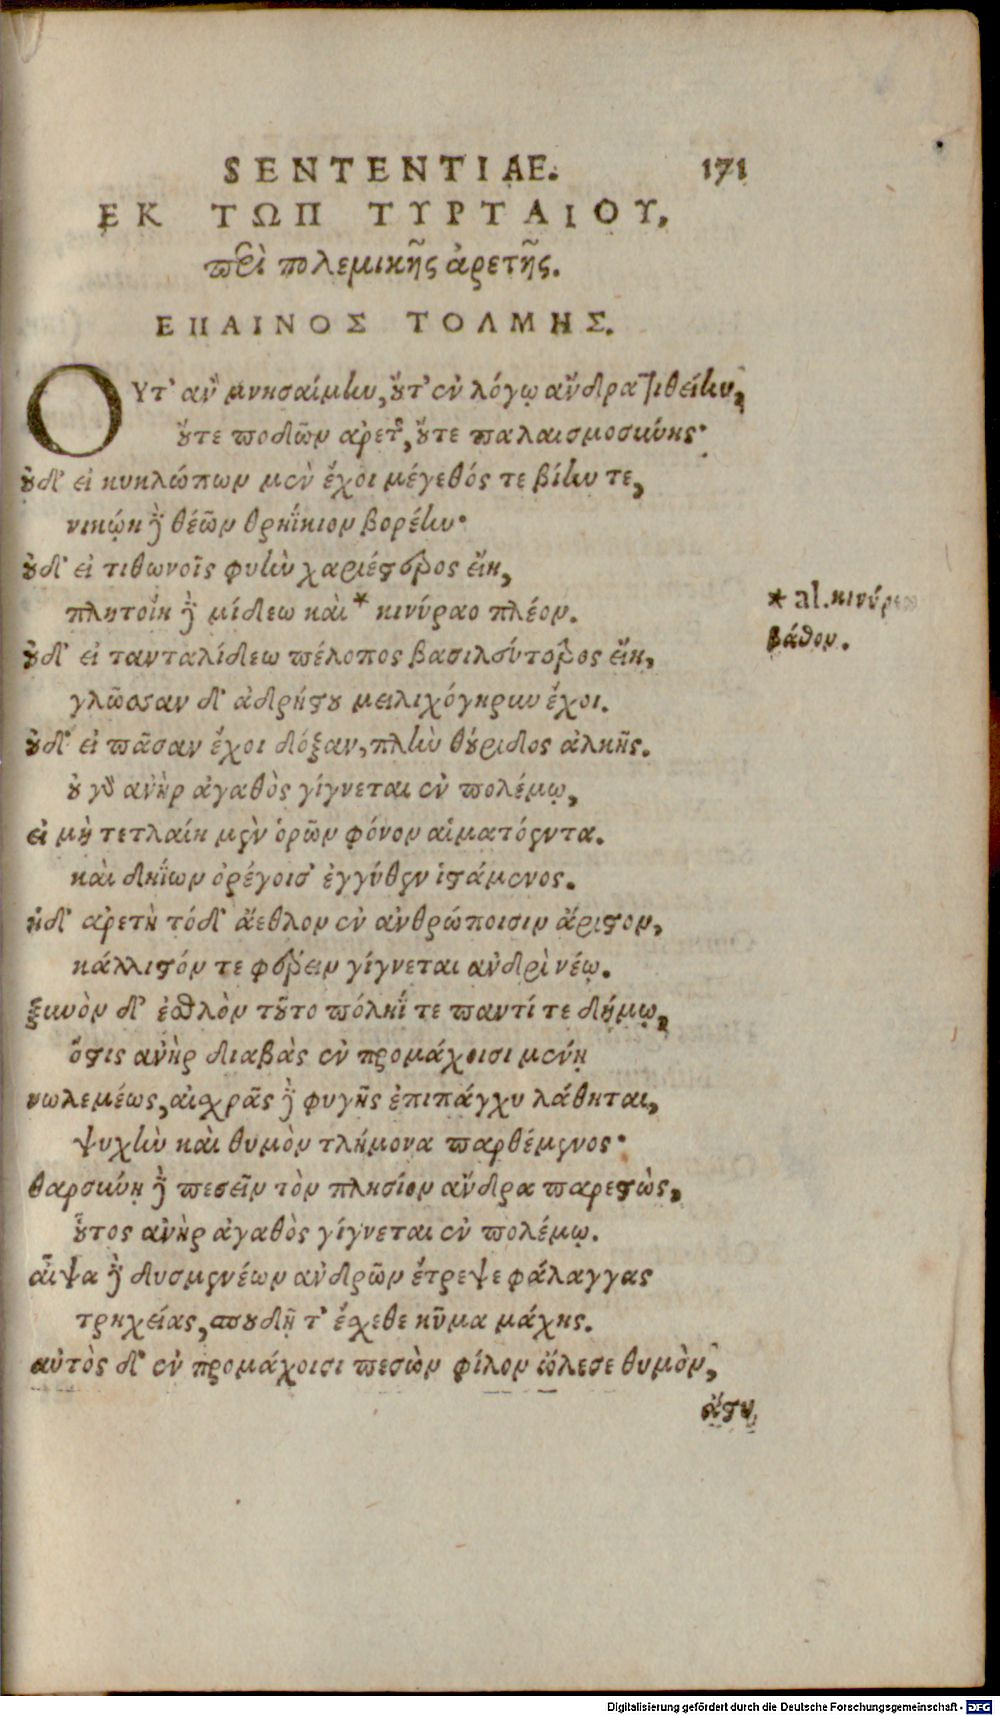 SENTENTIAE. 171
ΕΚ ΤΩΠ ΤΥΡΤΑΙΟΥ,
περὶ πολεμικῆς ἀρετῆς.
ΕΠΑΙΝΟΣ ΤΟΛΜΗΣ.
ΟΥτ' ἂν μνησαίμην, οὔτ' ἐν λόγῳ ἄνδρα τιθείην,
οὔτε ποδῶν ἀρετῆς, οὔτε παλαισμοσύνης·
οὐδ' εἰ κυκλώπων μὲν ἔχοι μέγεθός τε βίην τε,
νικῴη δὲ θέων θρηΐκιον βορέην·
οὐδ' εἰ τιθωνοῖς φυὴν χαριέστερος εἴη,
πλητοίη δὲ μίδεω καὶ * κινύραο πλέον.
* al. κινύρεω
βάθον.
οὐδ' εἰ τανταλίδεω πέλοπος βασιλεύτερος εἴη,
γλῶσσαν δ' ἀδρήστου μειλιχόγηρυν ἔχοι.
οὐδ' εἰ πᾶσαν ἔχοι δόξαν, πλὴν θούριδος ἀλκῆς.
οὐ γὰρ ἀνὴρ ἀγαθὸς γίγνεται ἐν πολέμῳ,
εἰ μὴ τετλαίη μὲν ὁρῶν φόνον αἱματόεντα.
καὶ δηΐων ὀρέγοισ' ἐγγύθεν ἱστάμενος.
ἡδ' ἀρετὴ τόδ' ἄεθλον ἐν ἀνθρώποισιν ἄριστον,
κάλλιστόν τε φέρειν γίγνεται ἀνδρὶ νέῳ.
ξυνὸν δ' ἐσθλὸν τοῦτο πόληΐ τε παντί τε δήμῳ,
ὅστις ἀνὴρ διαβὰς ἐν προμάχοισι μένῃ
νωλεμέως, αἰσχρᾶς δὲ φυγῆς ἐπιπάγχυ λάθηται,
ψυχὴν καὶ θυμὸν τλήμονα παρθέμενος·
θαρσύνῃ δὲ πεσεῖν τὸν πλησίον ἄνδρα παρεστὼς,
οὗτος ἀνὴρ ἀγαθὸς γίγνεται ἐν πολέμῳ.
αἶψα δὲ δυσμενέων ἀνδρῶν ἔτρεψε φάλαγγας
τρηχείας, σπουδῇ τ' ἔσχεθε κῦμα μάχης.
αὐτὸς δ' ἐν προμάχοισι πεσὼν φίλον ὤλεσε θυμὸν,
ἄστυ
Digitalisierung gefördert durch die Deutsche Forschungsgemeinschaft - DFG